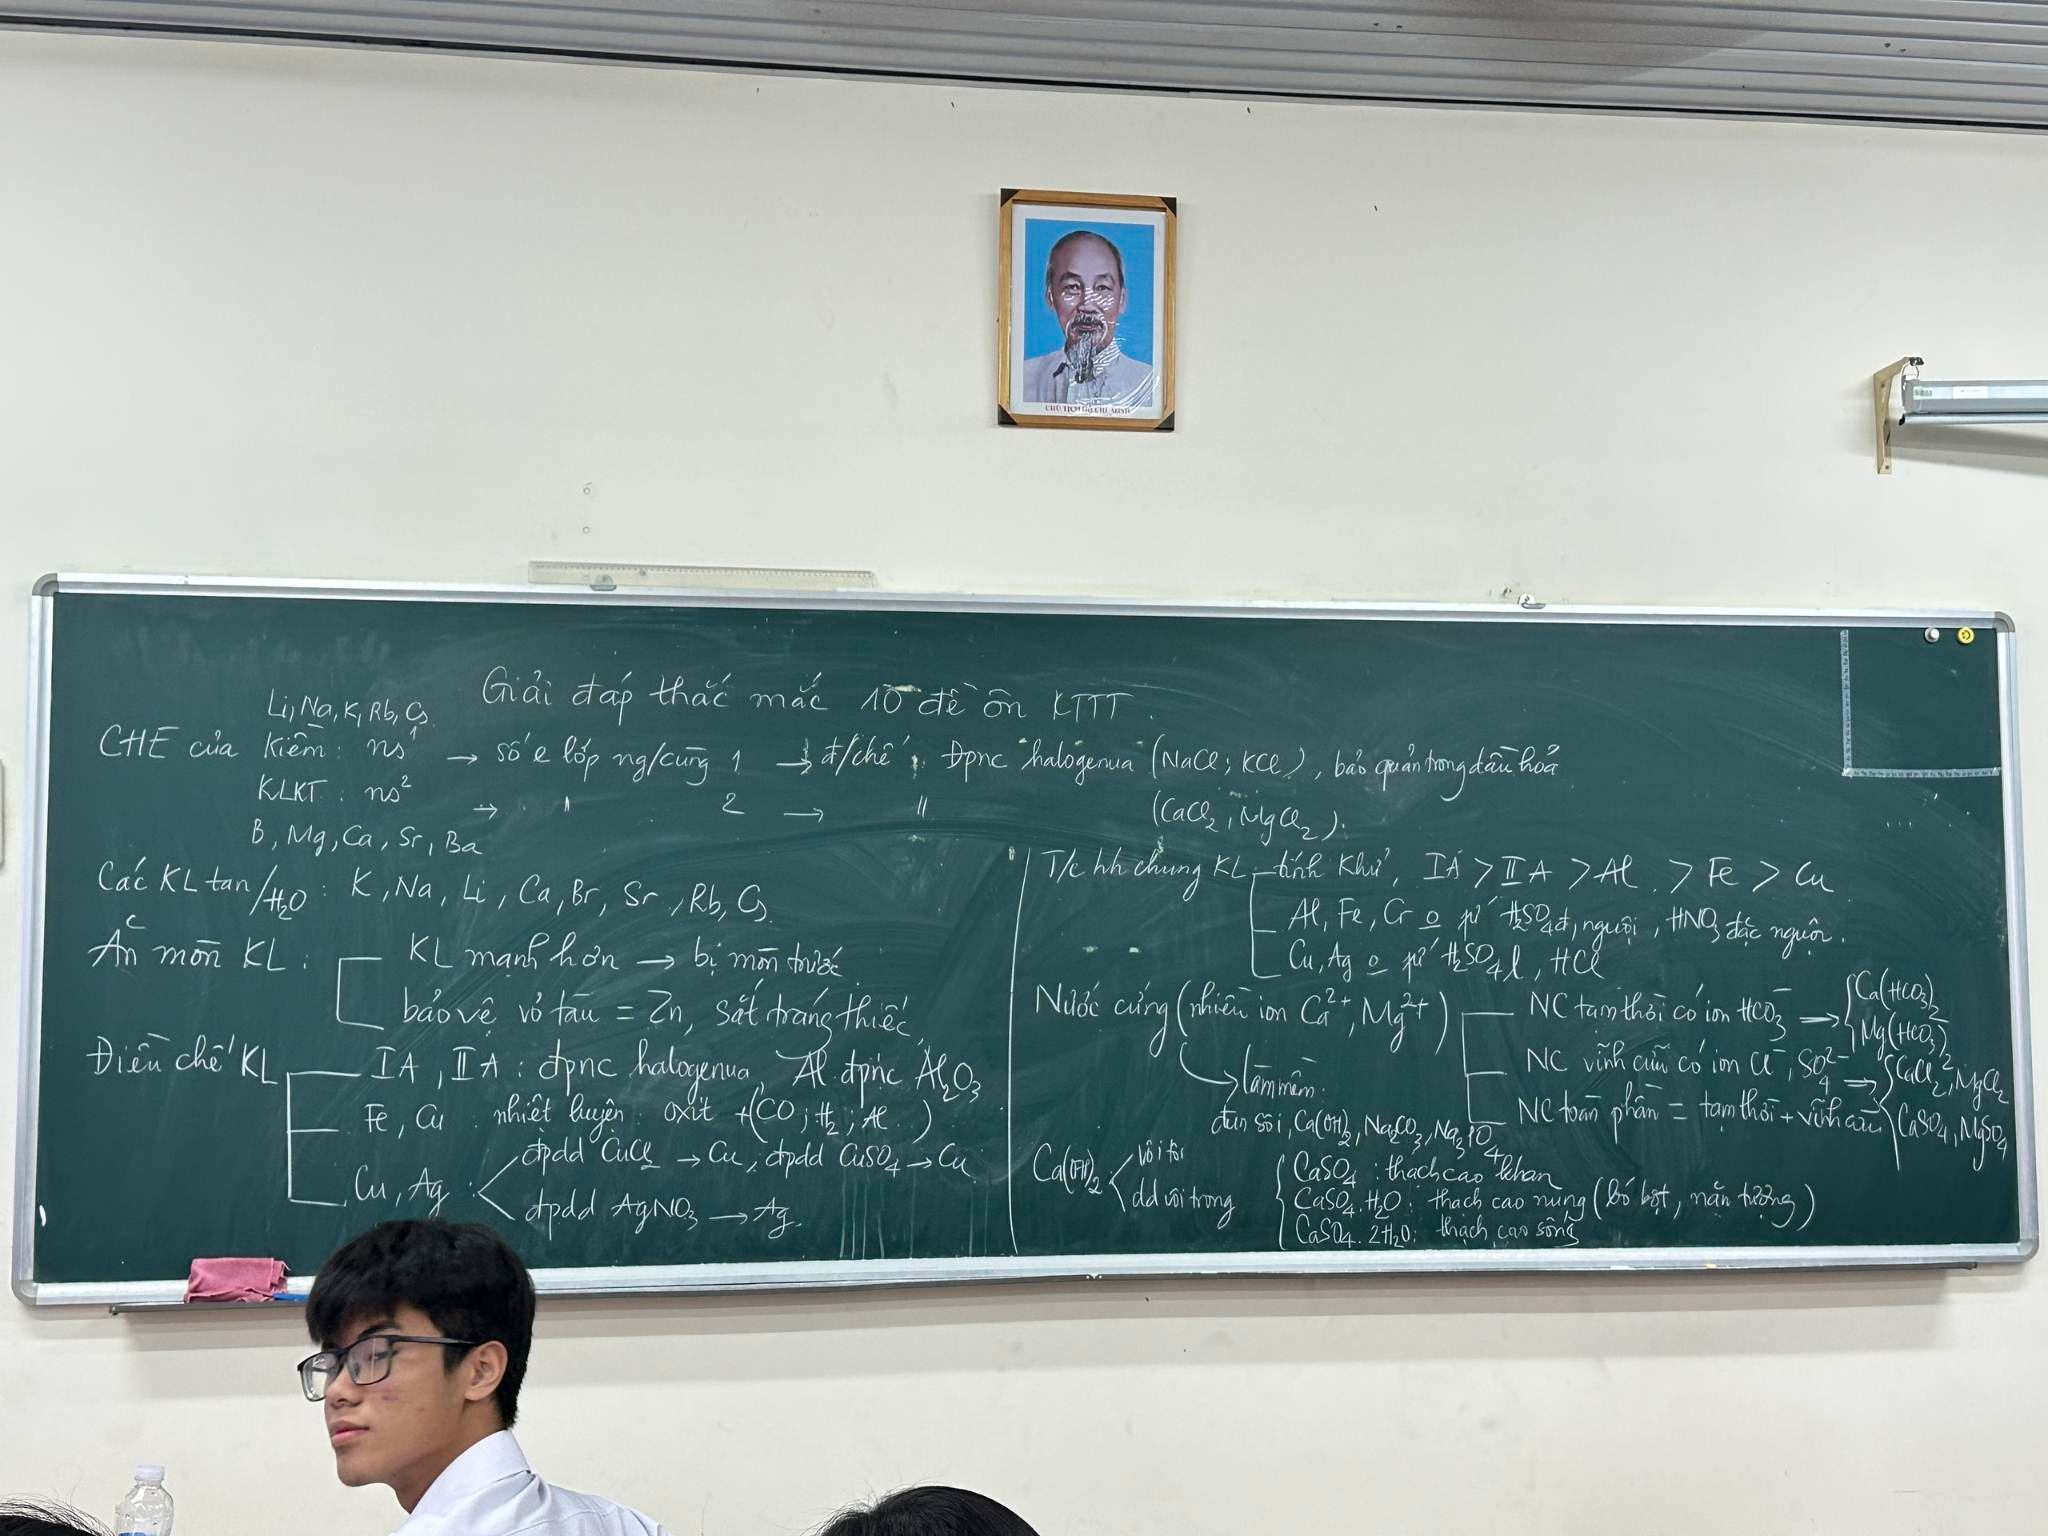 CHỦ TỊCH HỒ CHÍ MINH
Giải đáp thắc mắc 10 đề ôn KTTT.
Li, Na, K, Rb, Cs.
CHE của Kiềm: ns¹ → số e lớp ng/cùng 1 → đ/chế: Đpnc halogenua (NaCl; KCl), bảo quản trong dầu hỏa
KLKT: ns² → " 2 → " (CaCl₂; MgCl₂).
B, Mg, Ca, Sr, Ba
Các KL tan/H₂O: K, Na, Li, Ca, Br, Sr, Rb, Cs.
Ăn mòn KL:
KL mạnh hơn → bị mòn trước
bảo vệ vỏ tàu = Zn, sắt tráng thiếc
Điều chế KL
IA, IIA: đpnc halogenua, Al đpnc Al₂O₃
Fe, Cu: nhiệt luyện: oxit + (CO; H₂; Al)
Cu, Ag:
đpdd CuCl₂ → Cu, đpdd CuSO₄ → Cu
đpdd AgNO₃ → Ag.
T/c hh chung KL
tính khử, IA > IIA > Al > Fe > Cu
Al, Fe, Cr o pứ H₂SO₄ đ, nguội, HNO₃ đặc nguội.
Cu, Ag o pứ H₂SO₄ l, HCl
Nước cứng (nhiều ion Ca²⁺, Mg²⁺)
NC tạm thời có ion HCO₃⁻ → Ca(HCO₃)₂
Mg(HCO₃)₂
NC vĩnh cửu có ion Cl⁻, SO₄²⁻ → CaCl₂, MgCl₂
CaSO₄, MgSO₄
NC toàn phần = tạm thời + vĩnh cửu
làm mềm:
đun sôi, Ca(OH)₂, Na₂CO₃, Na₃PO₄
Ca(OH)₂
vôi tôi
dd vôi trong
CaSO₄: thạch cao khan
CaSO₄.H₂O: thạch cao nung (bó bột, nặn tượng)
CaSO₄.2H₂O: thạch cao sống